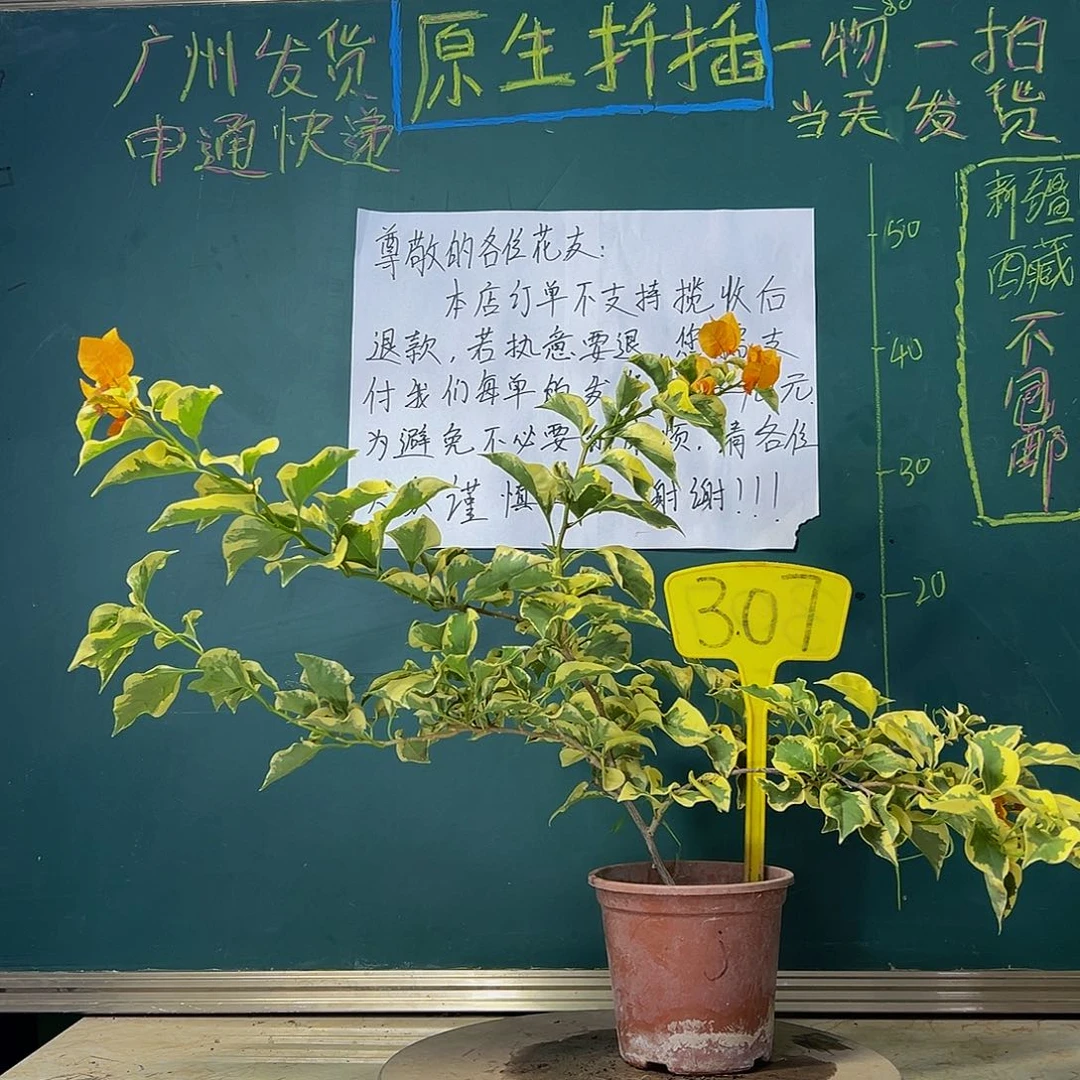 广州发货
申通快递
原生扦插
一物一拍
当天发货
尊敬的各位花友:
本店订单不支持揽收后
退款,若执意要退,您需支
付我们每单的发 元.
为避免不必要的麻烦.请各位
谨慎 谢谢!!!
50
40
30
20
新疆
西藏
不
包
邮
307